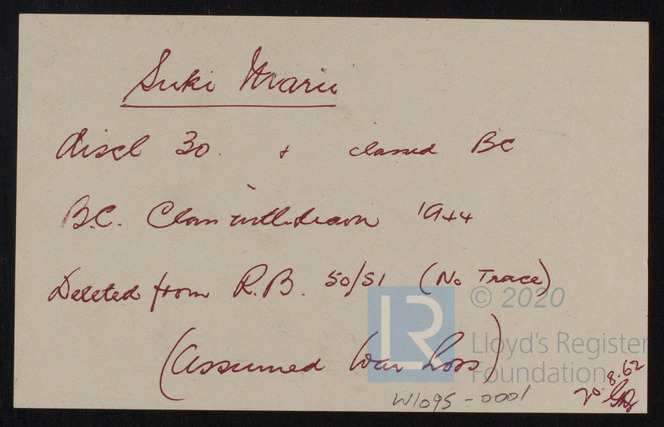 Suki Maru
discl 30. + classed BC
B.C. Class withdrawn 1944
Deleted from R.B. 50/51 (No Trace)
(Assumed War Loss)
© 2020
LR
Lloyd's Register
Foundation
20.8.62
W1095-0001